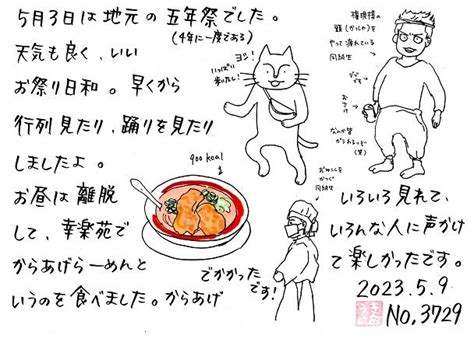 5月3日は地元の五年祭でした。
(4年に一度である)
天気も良く、いい
お祭り日和。早くから
行列見たり、踊りを見たり
しましたよ。
お昼は離脱
して、幸楽苑で
からあげらーめんと
いうのを食べました。からあげ
でかかった
です!
900kcal
ヨシ!
いっぱい
来いたし!
権現様の
頭(かしら)を
やって疲れている
同級生
おみこしを
かつぐ
同級生
いろいろ見れて、
いろんな人に声かけ
て楽しかったです。
2023.5.9
No.3729